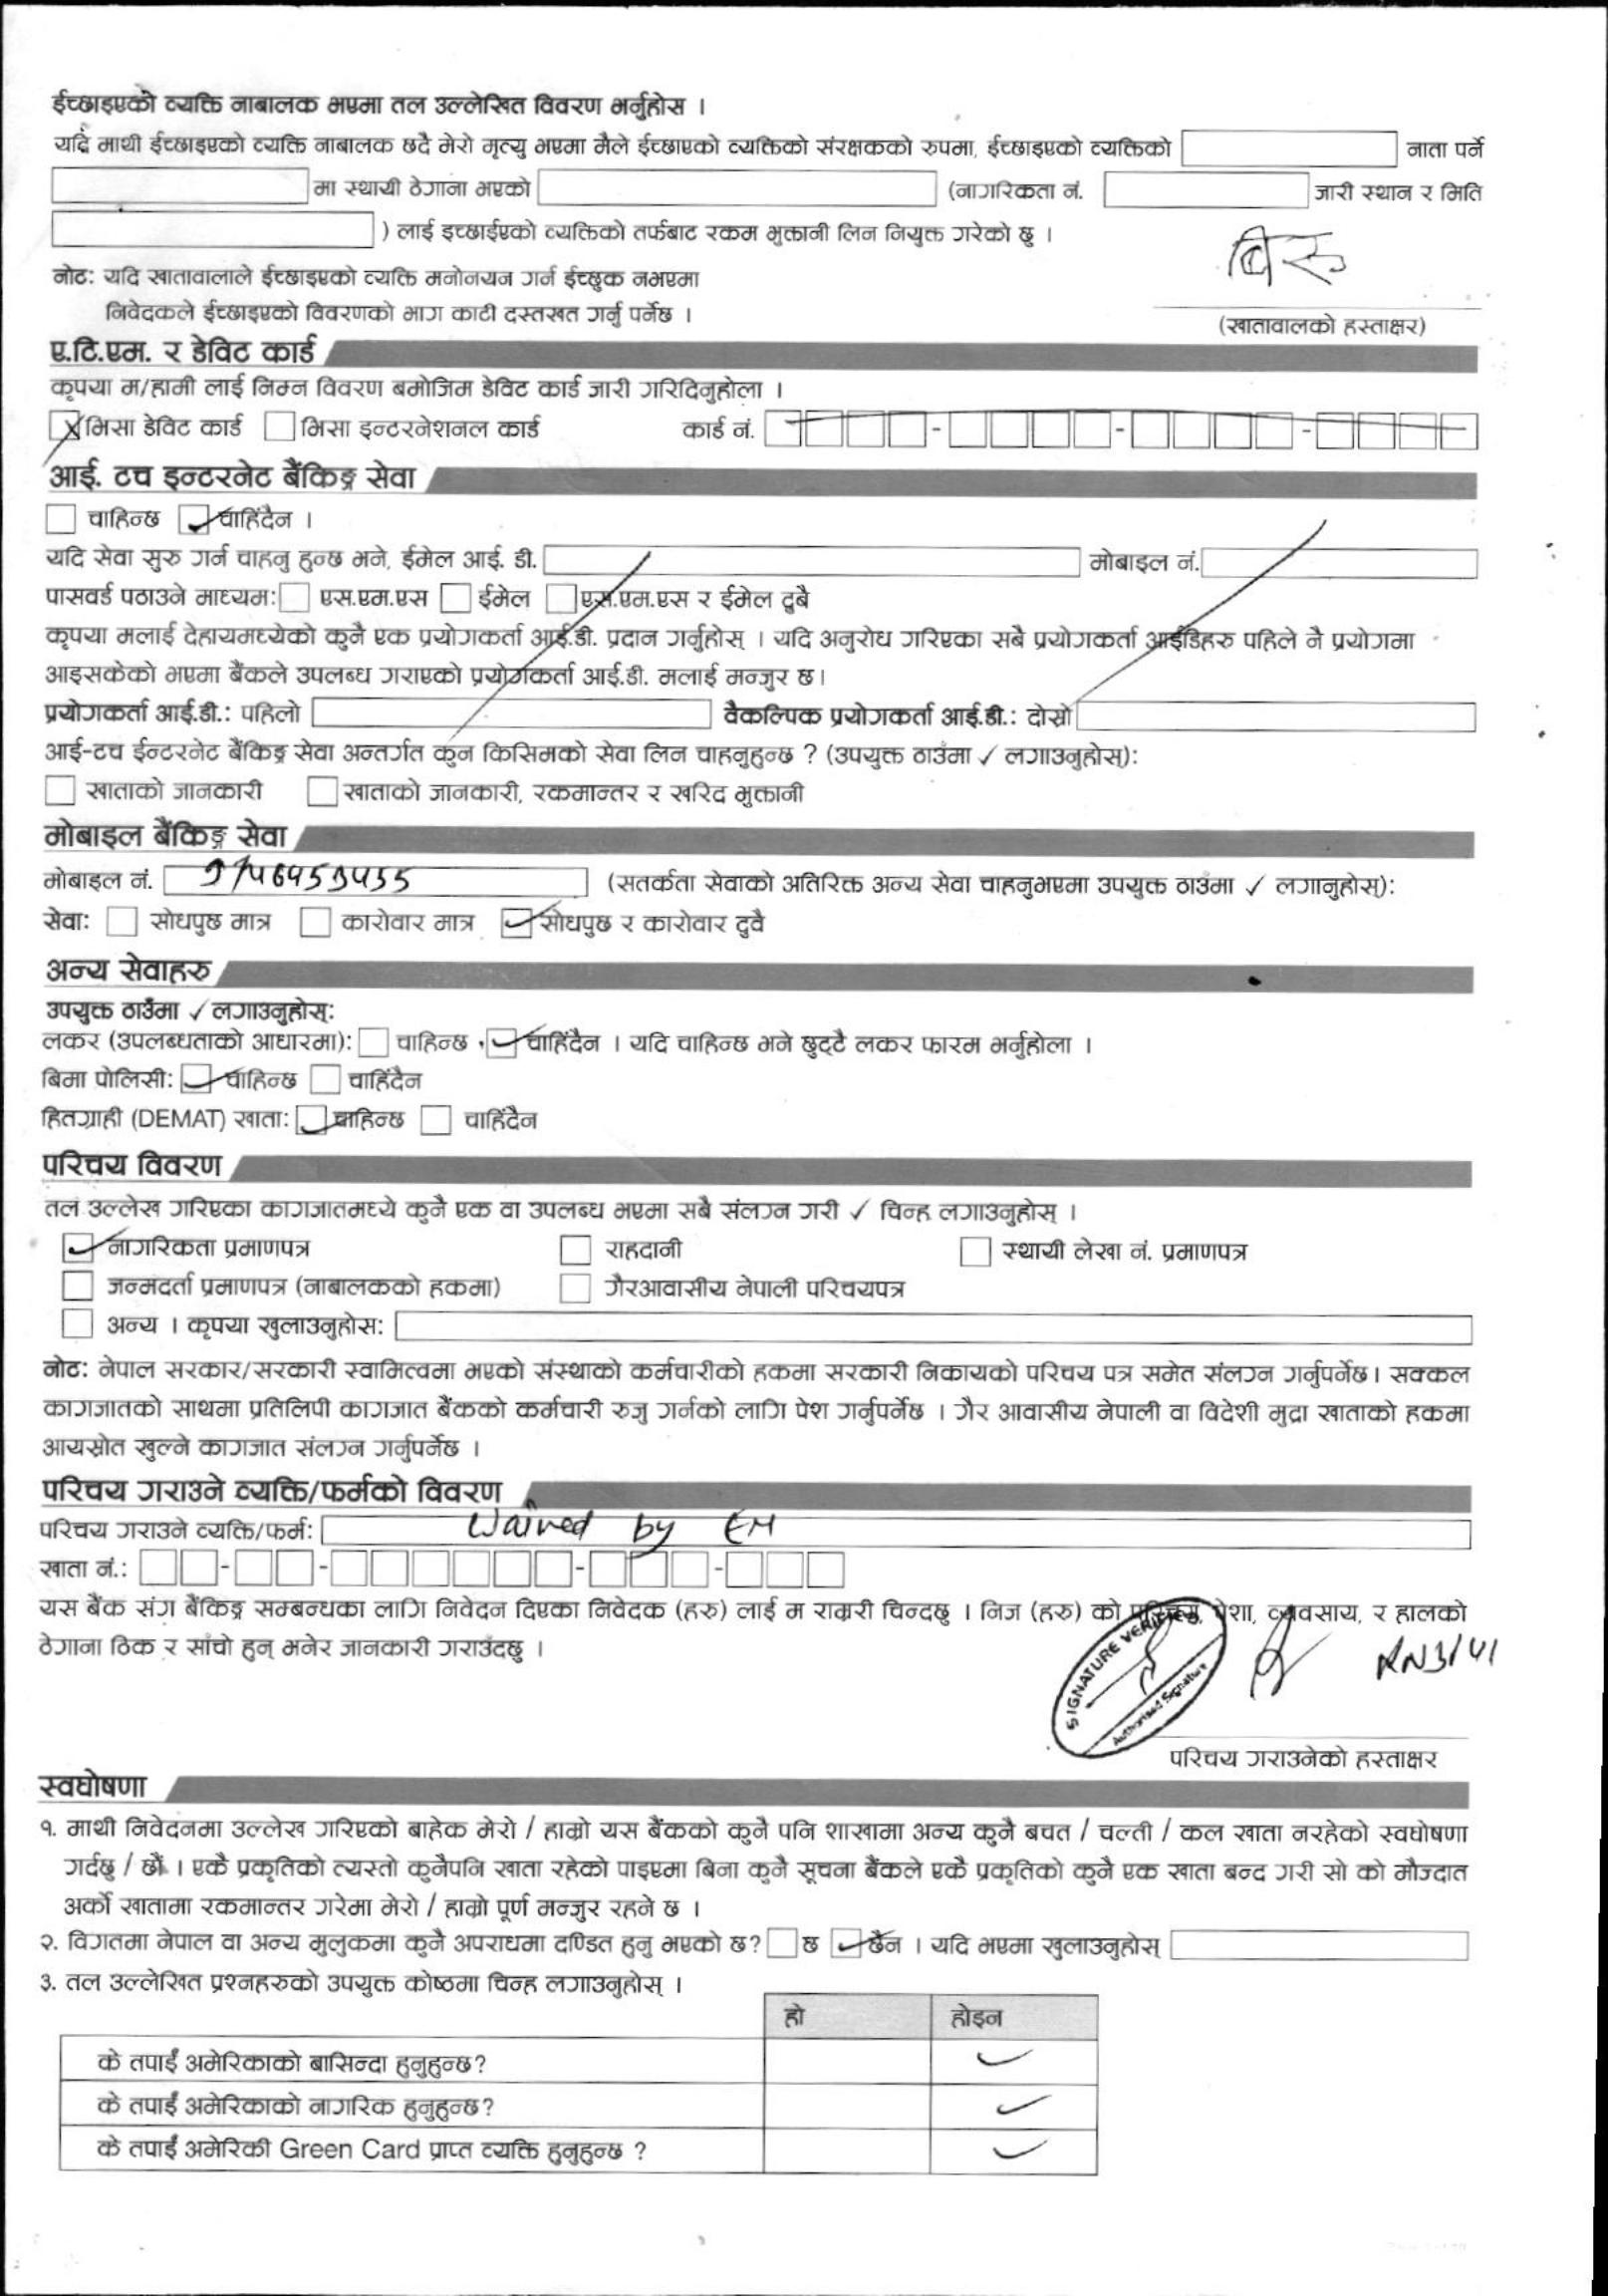 ईच्छाइएको व्यक्ति नाबालक भएमा तल उल्लेखित विवरण भर्नुहोस ।
यदि माथी ईच्छाइएको व्यक्ति नाबालक छदै मेरो मृत्यु भएमा मैले ईच्छाएको व्यक्तिको संरक्षकको रुपमा, ईच्छाइएको व्यक्तिको नाता पर्ने
मा स्थायी ठेगाना भएको (नागरिकता नं. जारी स्थान र मिति
) लाई इच्छाईएको व्यक्तिको तर्फबाट रकम भुक्तानी लिन नियुक्त गरेको छु ।
नोट: यदि खातावालाले ईच्छाइएको व्यक्ति मनोनयन गर्न ईच्छुक नभएमा
निवेदकले ईच्छाइएको विवरणको भाग काटी दस्तखत गर्नु पर्नेछ ।
(खातावालको हस्ताक्षर)
ए.टि.एम. र डेविट कार्ड
कृपया म/हामी लाई निम्न विवरण बमोजिम डेविट कार्ड जारी गरिदिनुहोला ।
भिसा डेविट कार्ड भिसा इन्टरनेशनल कार्ड कार्ड नं.
आई. टच इन्टरनेट बैंकिङ्ग सेवा
चाहिन्छ चाहिंदैन ।
यदि सेवा सुरु गर्न चाहनु हुन्छ भने, ईमेल आई. डी. मोबाइल नं.
पासवर्ड पठाउने माध्यम: एस.एम.एस ईमेल एस.एम.एस र ईमेल दुबै
कृपया मलाई देहायमध्येको कुनै एक प्रयोगकर्ता आई.डी. प्रदान गर्नुहोस् । यदि अनुरोध गरिएका सबै प्रयोगकर्ता आईडिहरु पहिले नै प्रयोगमा
आइसकेको भएमा बैंकले उपलब्ध गराएको प्रयोगकर्ता आई.डी. मलाई मन्जुर छ।
प्रयोगकर्ता आई.डी.: पहिलो वैकल्पिक प्रयोगकर्ता आई.डी.: दोस्रो
आई-टच ईन्टरनेट बैंकिङ्ग सेवा अन्तर्गत कुन किसिमको सेवा लिन चाहनुहुन्छ ? (उपयुक्त ठाउँमा ✓ लगाउनुहोस्):
खाताको जानकारी खाताको जानकारी, रकमान्तर र खरिद भुक्तानी
मोबाइल बैंकिङ्ग सेवा
मोबाइल नं. 9746953455 (सतर्कता सेवाको अतिरिक्त अन्य सेवा चाहनुभएमा उपयुक्त ठाउँमा ✓ लगानुहोस्):
सेवा: सोधपुछ मात्र कारोवार मात्र सोधपुछ र कारोवार दुवै
अन्य सेवाहरु
उपयुक्त ठाउँमा ✓ लगाउनुहोस्:
लकर (उपलब्धताको आधारमा): चाहिन्छ चाहिंदैन । यदि चाहिन्छ भने छुट्टै लकर फारम भर्नुहोला ।
बिमा पोलिसी: चाहिन्छ चाहिंदैन
हितग्राही (DEMAT) खाता: चाहिन्छ चाहिंदैन
परिचय विवरण
तल उल्लेख गरिएका कागजातमध्ये कुनै एक वा उपलब्ध भएमा सबै संलग्न गरी ✓ चिन्ह लगाउनुहोस् ।
नागरिकता प्रमाणपत्र राहदानी स्थायी लेखा नं. प्रमाणपत्र
जन्मदर्ता प्रमाणपत्र (नाबालकको हकमा) गैरआवासीय नेपाली परिचयपत्र
अन्य । कृपया खुलाउनुहोस:
नोट: नेपाल सरकार/सरकारी स्वामित्वमा भएको संस्थाको कर्मचारीको हकमा सरकारी निकायको परिचय पत्र समेत संलग्न गर्नुपर्नेछ। सक्कल
कागजातको साथमा प्रतिलिपी कागजात बैंकको कर्मचारी रुजु गर्नको लागि पेश गर्नुपर्नेछ । गैर आवासीय नेपाली वा विदेशी मुद्रा खाताको हकमा
आयस्रोत खुल्ने कागजात संलग्न गर्नुपर्नेछ ।
परिचय गराउने व्यक्ति/फर्मको विवरण
परिचय गराउने व्यक्ति/फर्म: Waived by EM
खाता नं.:
यस बैंक संग बैंकिङ्ग सम्बन्धका लागि निवेदन दिएका निवेदक (हरु) लाई म राम्ररी चिन्दछु । निज (हरु) को परिचय, पेशा, व्यवसाय, र हालको
ठेगाना ठिक र सांचो हुन् भनेर जानकारी गराउँदछु ।
SIGNATURE VERIFIED
Authorised Signature
RN3141
परिचय गराउनेको हस्ताक्षर
स्वघोषणा
१. माथी निवेदनमा उल्लेख गरिएको बाहेक मेरो / हाम्रो यस बैंकको कुनै पनि शाखामा अन्य कुनै बचत / चल्ती / कल खाता नरहेको स्वघोषणा
गर्दछु / छौं । एकै प्रकृतिको त्यस्तो कुनैपनि खाता रहेको पाइएमा बिना कुनै सूचना बैंकले एकै प्रकृतिको कुनै एक खाता बन्द गरी सो को मौज्दात
अर्को खातामा रकमान्तर गरेमा मेरो / हाम्रो पूर्ण मन्जुर रहने छ ।
२. विगतमा नेपाल वा अन्य मुलुकमा कुनै अपराधमा दण्डित हुनु भएको छ? छ छैन । यदि भएमा खुलाउनुहोस्
३. तल उल्लेखित प्रश्नहरुको उपयुक्त कोष्ठमा चिन्ह लगाउनुहोस् ।
हो होइन
के तपाईं अमेरिकाको बासिन्दा हुनुहुन्छ? ✓
के तपाईं अमेरिकाको नागरिक हुनुहुन्छ? ✓
के तपाईं अमेरिकी Green Card प्राप्त व्यक्ति हुनुहुन्छ ? ✓